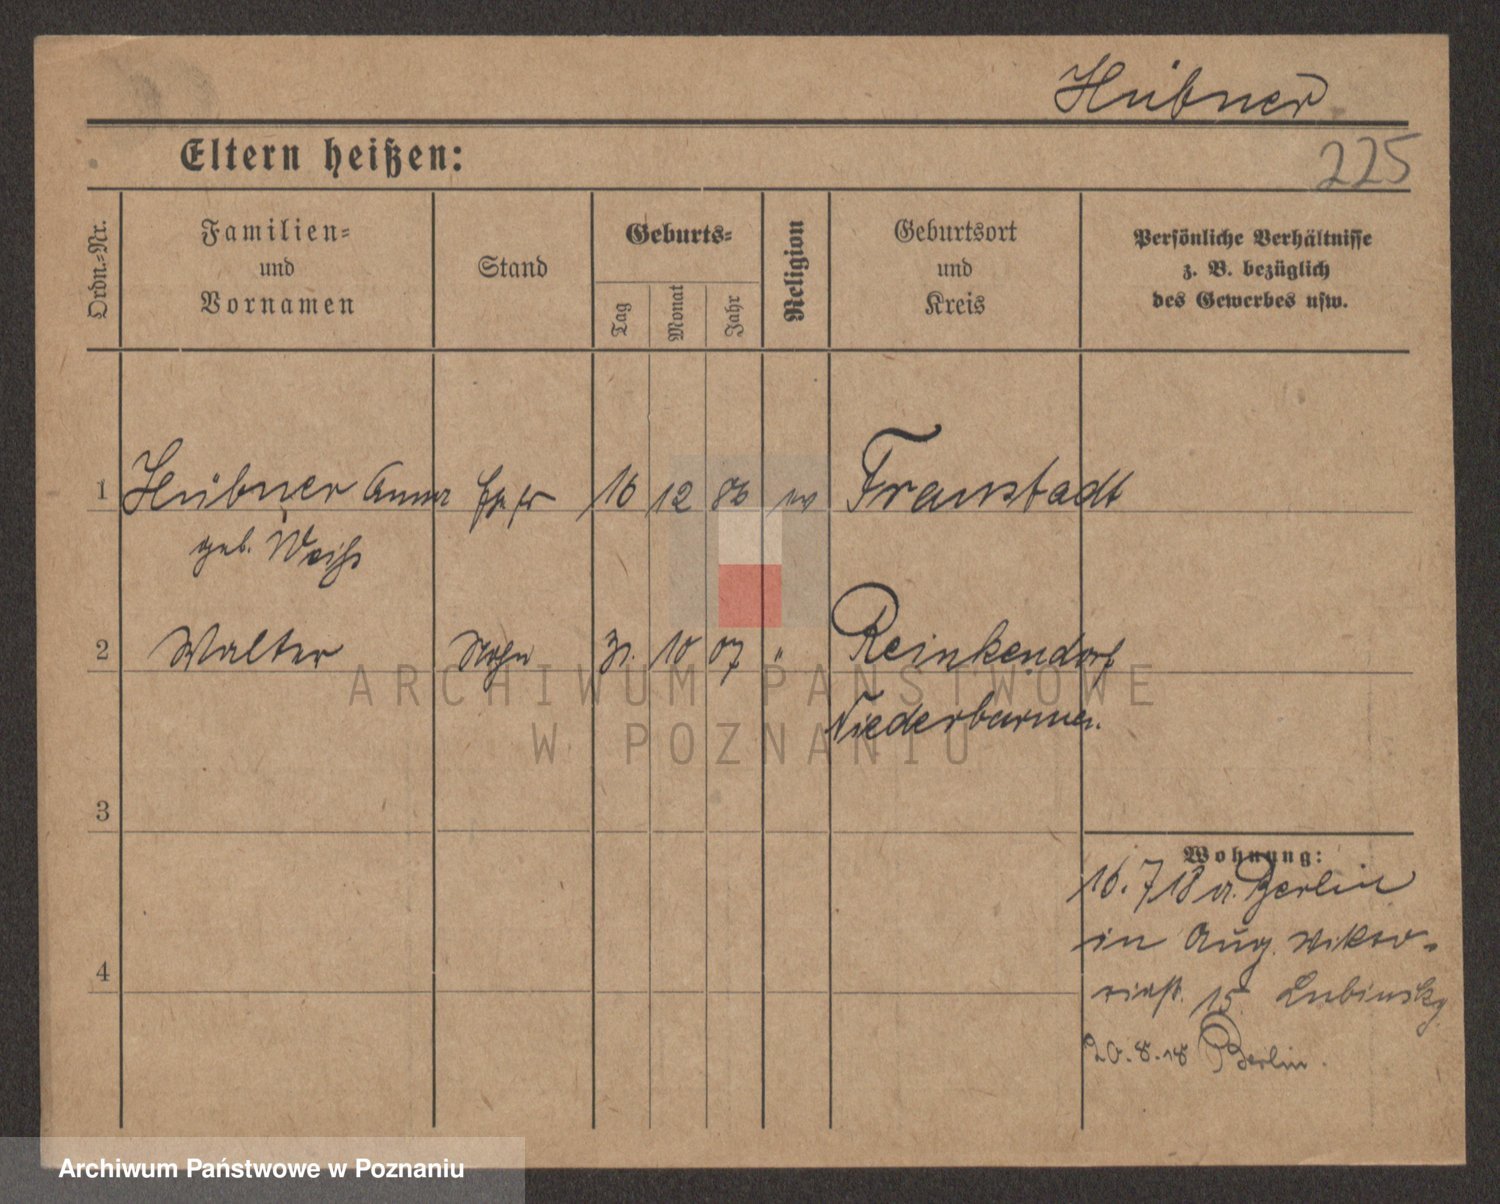 Hübner
225
Eltern heißen:
Ordn.-Nr.
Familien-
und
Vornamen
Stand
Geburts-
Tag
Monat
Jahr
Religion
Geburtsort
und
Kreis
Persönliche Verhältnisse
z. B. bezüglich
des Gewerbes usw.
1 Hübner Anna 16 12 86 ev Fraustadt
geb. Weihs
2 Walter Sohn 31. 10 07 " Reinkendorf
Niederbarnim.
3
Wohnung:
16.7 18 a. Berlin
in Aug. Viktor-
riast. 15 Lubinsky
4
20.8.18 Berlin.
ARCHIWUM PAŃSTWOWE
W POZNANIU
Archiwum Państwowe w Poznaniu